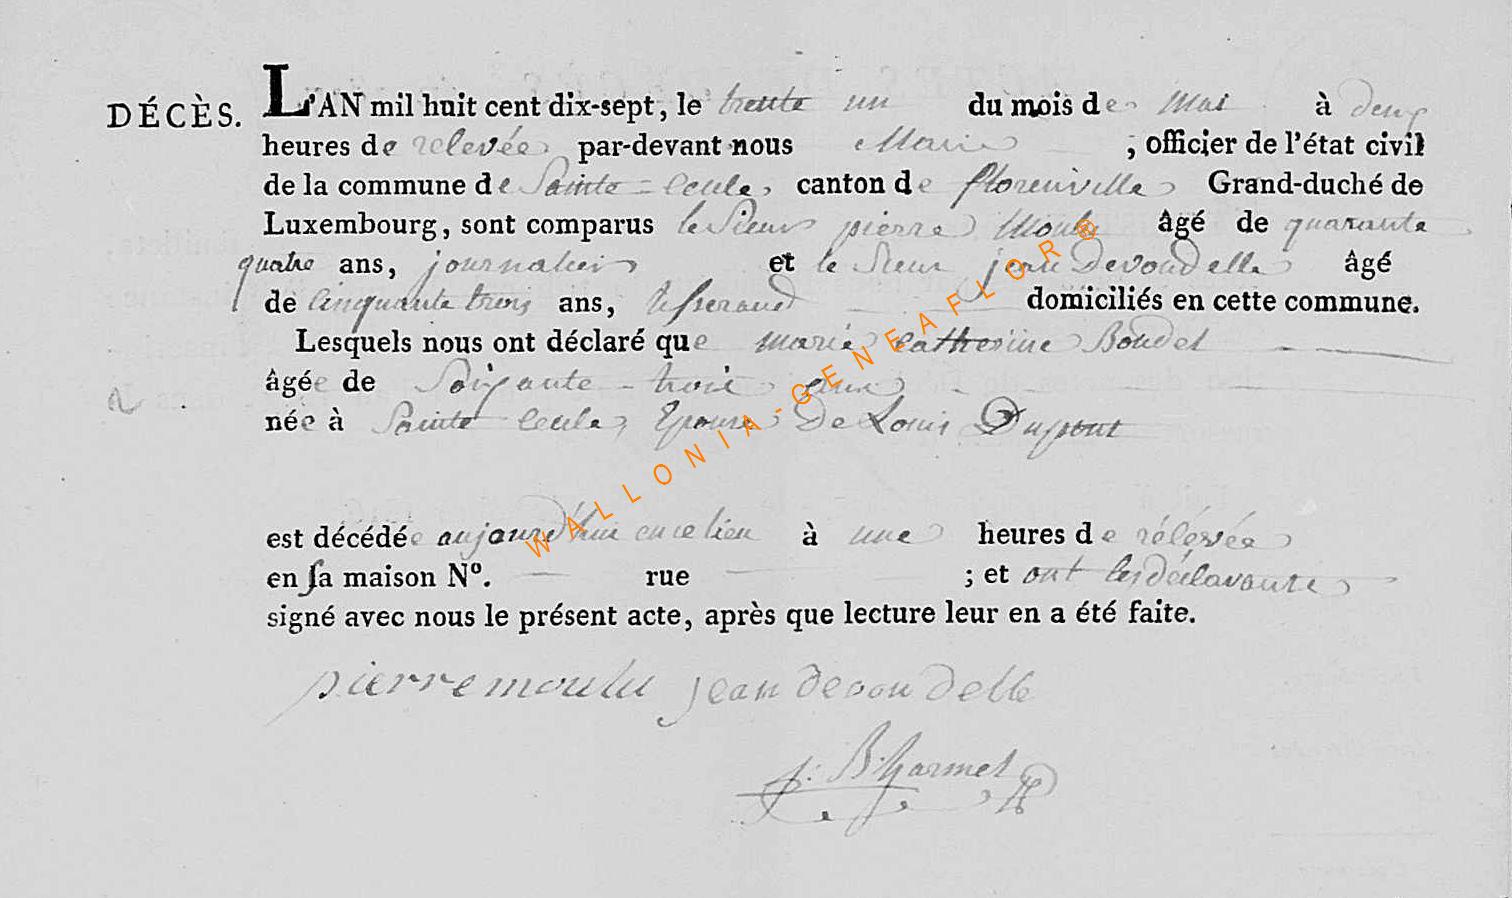 DÉCÈS. L'AN mil huit cent dix-sept, le trente un du mois de Mai à deux
heures de relevée par-devant nous Maire ; officier de l'état civil
de la commune de Sainte-Cecile, canton de florenville Grand-duché de
Luxembourg, sont comparus le Sieur pierre Moulu âgé de quarante
quatre ans, journalier et le Sieur jean Devoudelle âgé
de Cinquante trois ans, tisserand domiciliés en cette commune.
Lesquels nous ont déclaré que marie Catherine Boudet
âgée de Soixante-trois ans
née à Sainte Cecile, Epouse De Louis Dupont
est décédée aujourd'hui en ce lieu à une heures de rélévée
en sa maison N°. rue ; et ont les déclarants
signé avec nous le présent acte, après que lecture leur en a été faite.
pierre moulu jean devoudelle
J: B: Harmel
WALLONIA-GENEAFLOR®